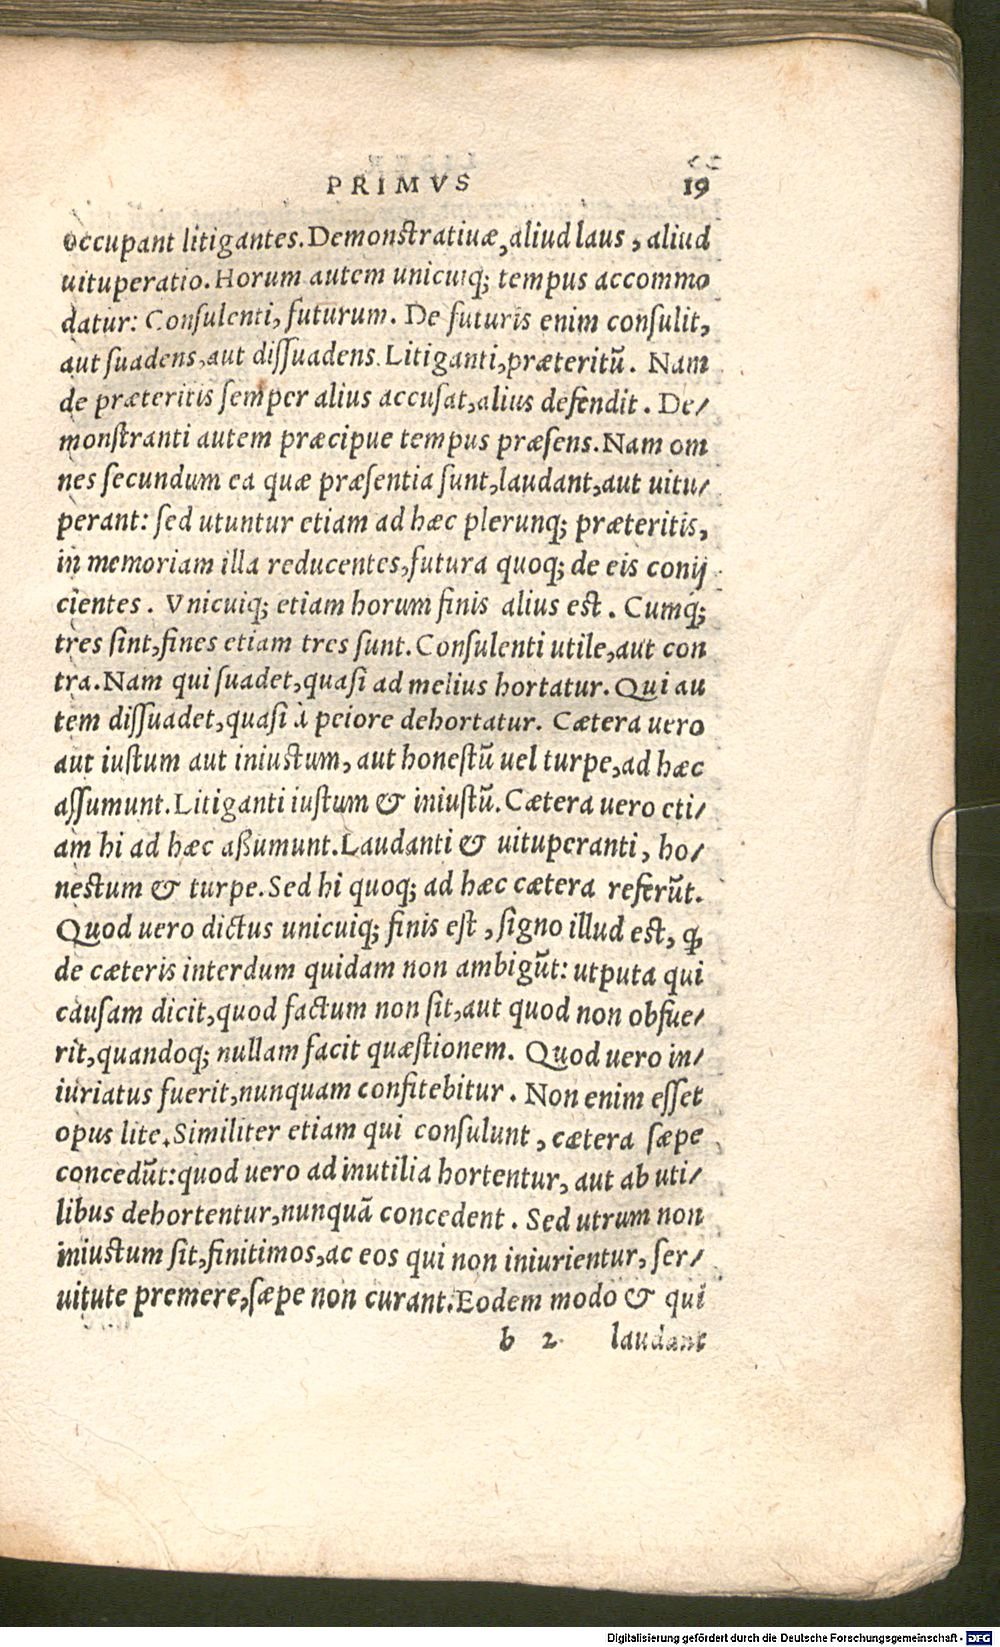 PRIMVS 19
occupant litigantes. Demonstratiuæ, aliud laus, aliud
uituperatio. Horum autem unicuiq; tempus accommo
datur: Consulenti, futurum. De futuris enim consulit,
aut suadens, aut dissuadens. Litiganti, præteritū. Nam
de præteritis semper alius accusat, alius defendit. De/
monstranti autem præcipue tempus præsens. Nam om
nes secundum ea quæ præsentia sunt, laudant, aut uitu/
perant: sed utuntur etiam ad hæc plerunq; præteritis,
in memoriam illa reducentes, futura quoq; de eis conij
cientes. Vnicuiq; etiam horum finis alius est. Cumq;
tres sint, fines etiam tres sunt. Consulenti utile, aut con
tra. Nam qui suadet, quasi ad melius hortatur. Qui au
tem dissuadet, quasi à peiore dehortatur. Cætera uero
aut iustum aut iniustum, aut honestū uel turpe, ad hæc
assumunt. Litiganti iustum & iniustū. Cætera uero eti/
am hi ad hæc aßumunt. Laudanti & uituperanti, ho/
nestum & turpe. Sed hi quoq; ad hæc cætera referūt.
Quod uero dictus unicuiq; finis est, signo illud est, ꝙ
de cæteris interdum quidam non ambigūt: utputa qui
causam dicit, quod factum non sit, aut quod non obfue/
rit, quandoq; nullam facit quæstionem. Quod uero in/
iuriatus fuerit, nunquam confitebitur. Non enim esset
opus lite. Similiter etiam qui consulunt, cætera sæpe
concedūt: quod uero ad inutilia hortentur, aut ab uti/
libus dehortentur, nunquā concedent. Sed utrum non
iniustum sit, finitimos, ac eos qui non iniurientur, ser/
uitute premere, sæpe non curant. Eodem modo & qui
b 2 laudant
Digitalisierung gefördert durch die Deutsche Forschungsgemeinschaft - DFG